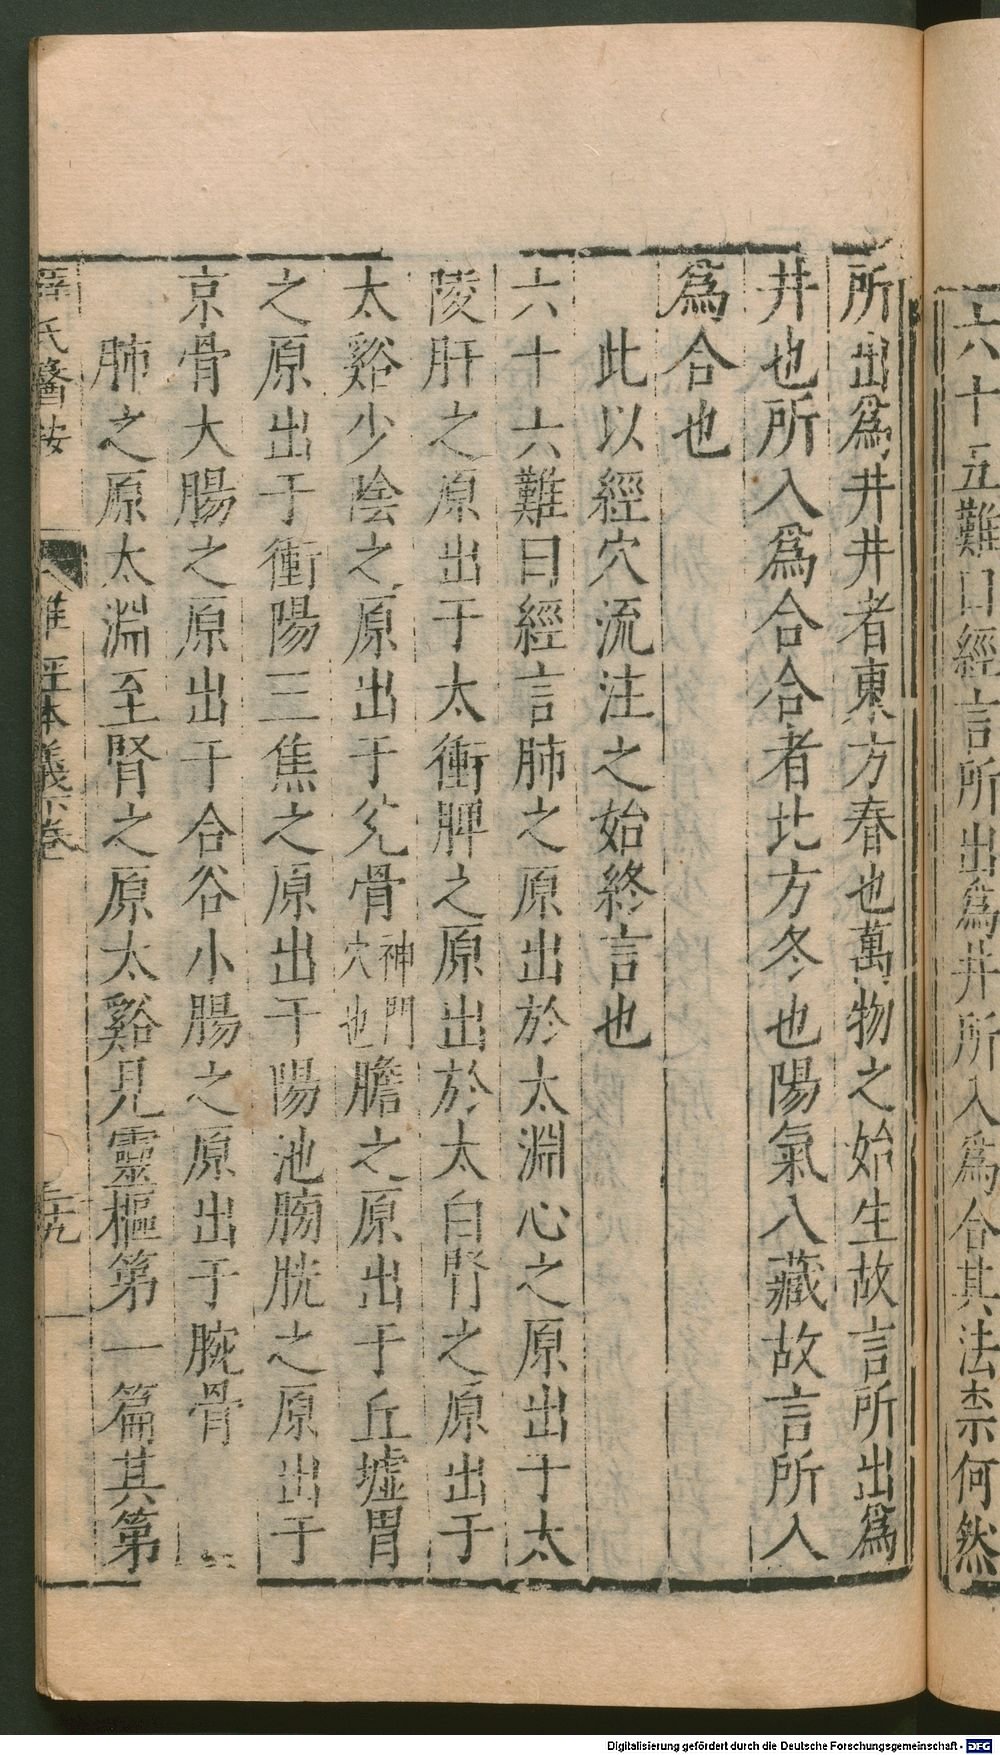 六十五難曰經言所出爲井所入爲合其法柰何然
所出爲井井者東方春也萬物之始生故言所出爲
井也所入爲合合者北方冬也陽氣入藏故言所入
爲合也
此以經穴流注之始終言也
六十六難曰經言肺之原出於太淵心之原出于太
陵肝之原出于太衝脾之原出於太白腎之原出于
太谿少陰之原出于兊骨神門穴也膽之原出于丘墟胃
之原出于衝陽三焦之原出于陽池膀胱之原出于
京骨大腸之原出于合谷小腸之原出于腕骨
肺之原太淵至腎之原太谿見靈樞第一篇其第
薛氏醫按 難經本義下卷 三十九
Digitalisierung gefördert durch die Deutsche Forschungsgemeinschaft - DFG